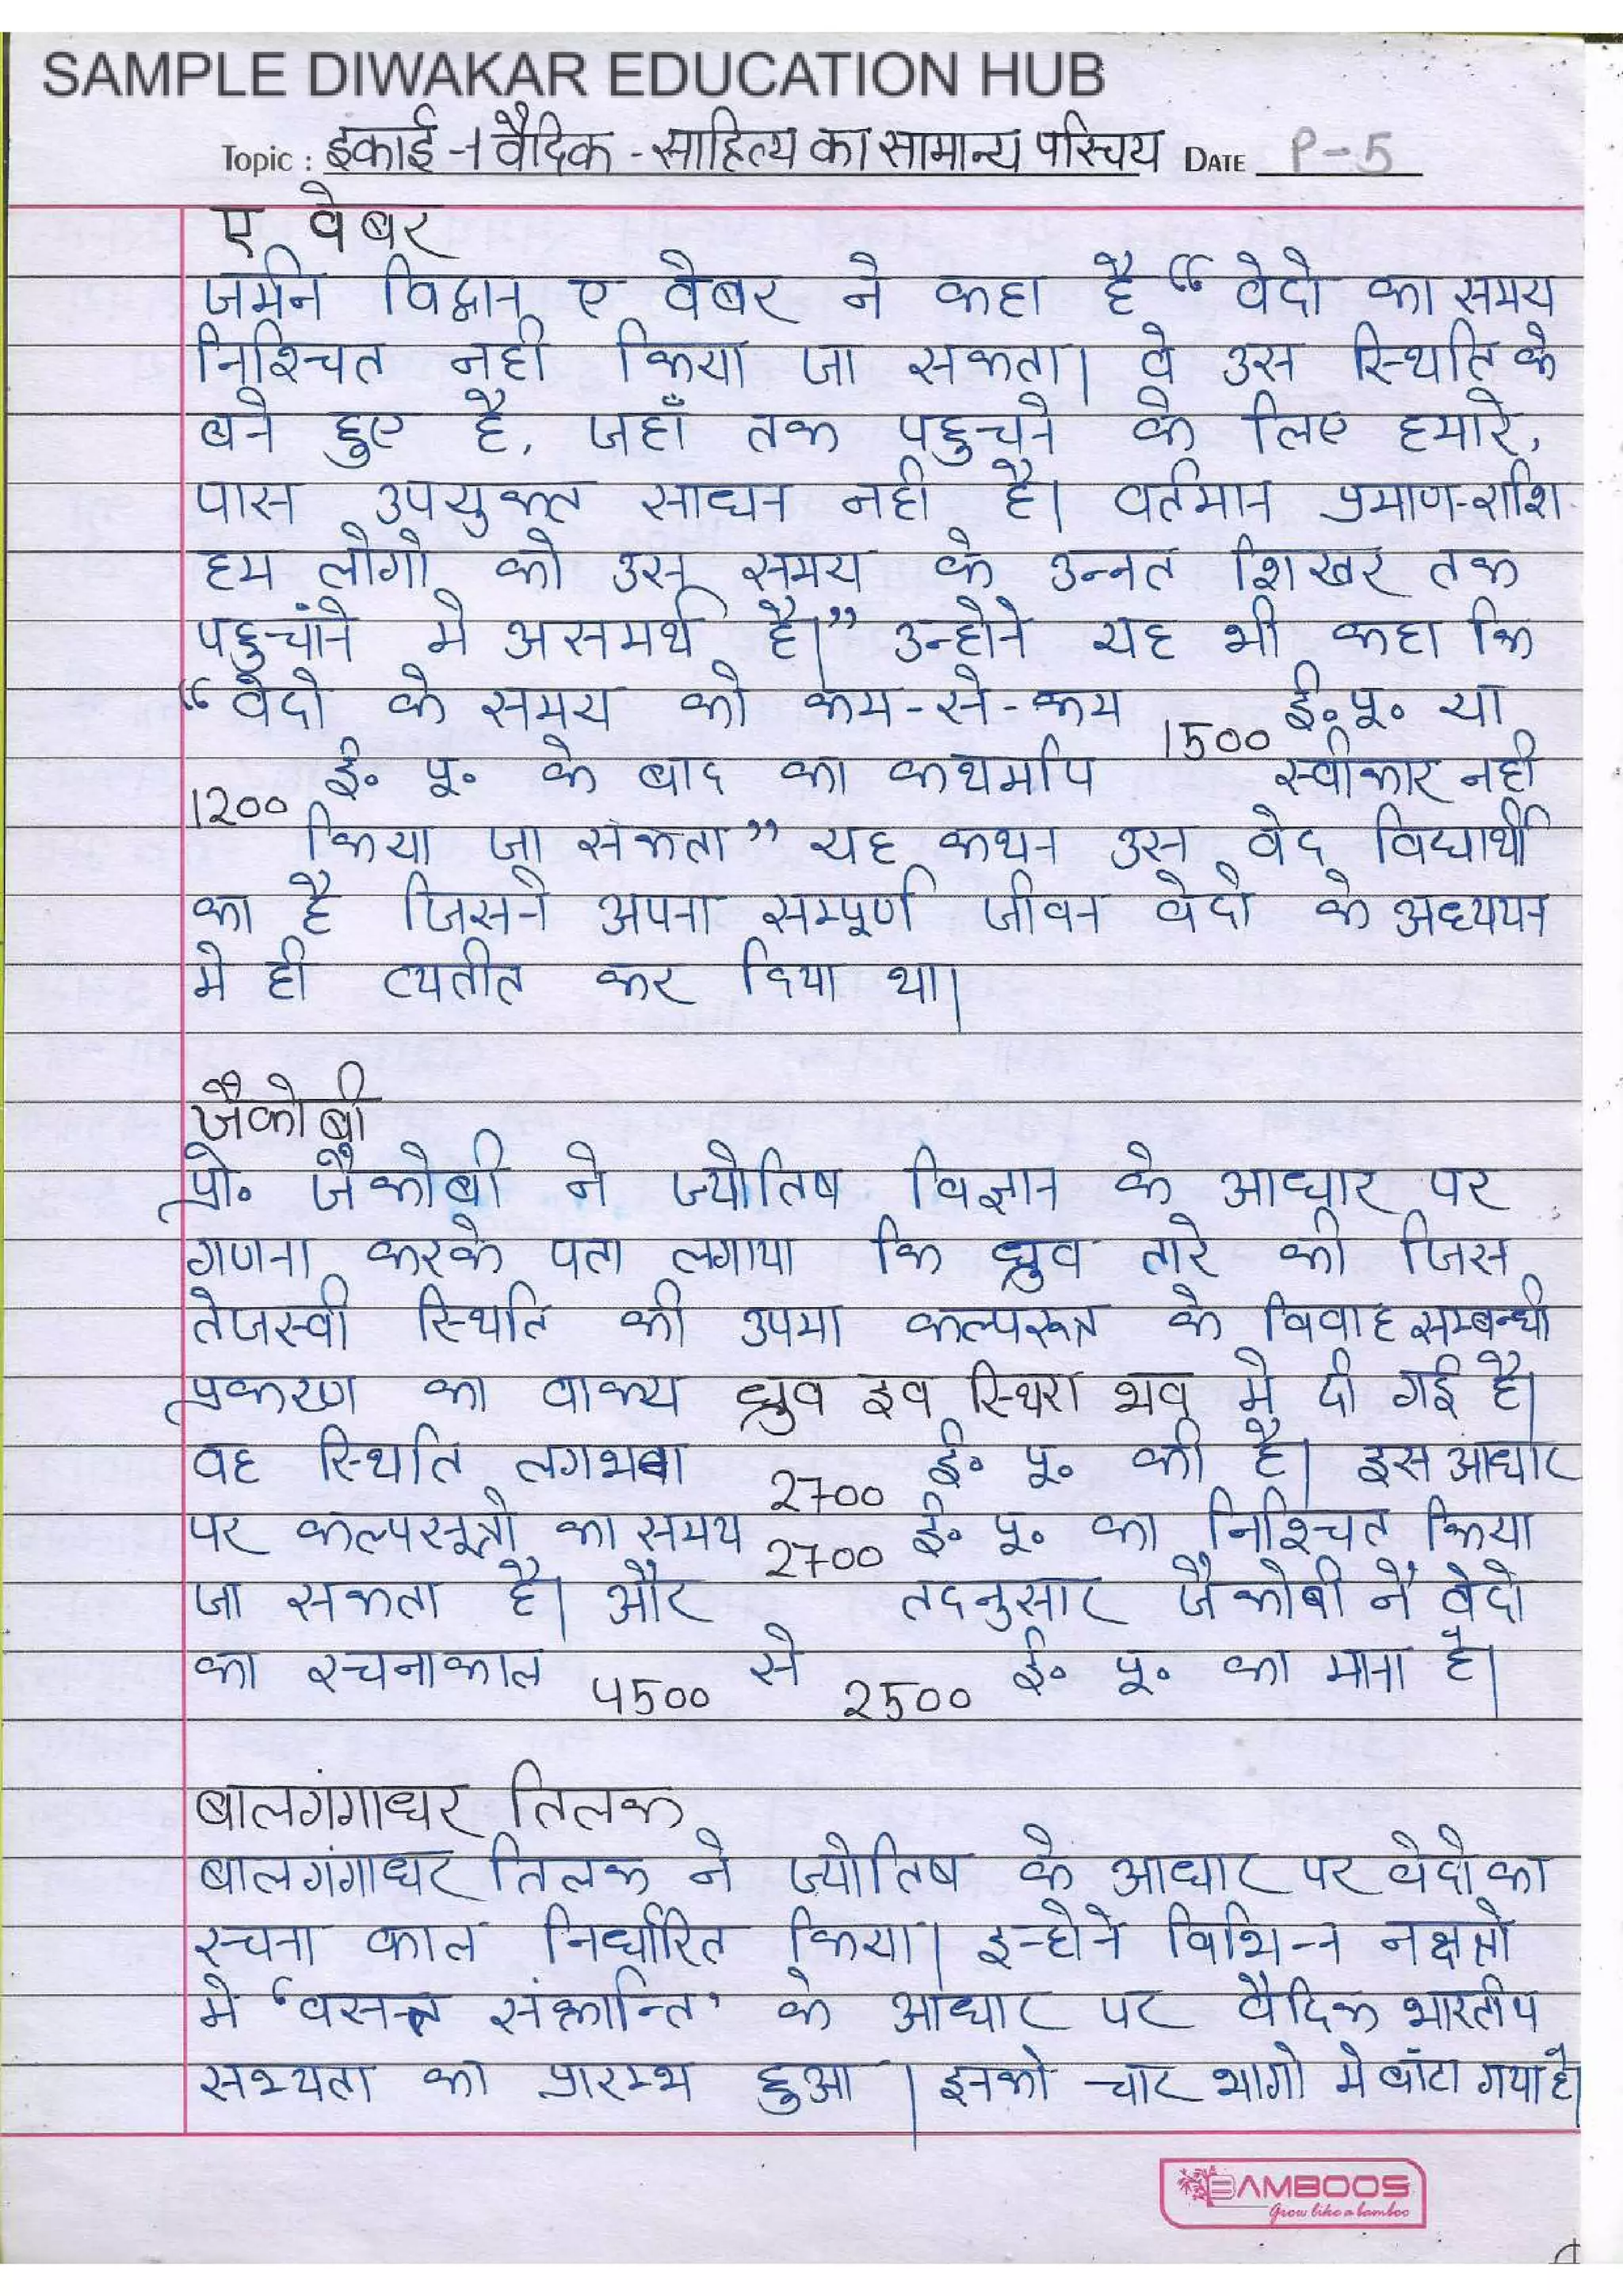 SAMPLE DIWAKAR EDUCATION HUB
Topic : इकाई -1 वैदिक - साहित्य का सामान्य परिचय DATE P-5
ए वेबर
जर्मन विद्वान ए वेबर ने कहा है “ वेदो का समय
निश्चित नही किया जा सकता। वे उस स्थिति के
बने हुए है, जहाँ तक पहुचने के लिए हमारे,
पास उपयुक्त साधन नही है। वर्तमान प्रमाण-राशि
हम लोगो को उस समय के उन्नत शिखर तक
पहुचांने मे असमर्थ है।” उन्होने यह भी कहा कि
“वेदो के समय को कम-से-कम 1500 ई॰ पू॰ या
1200 ई॰ पू॰ के बाद का कथमपि स्वीकार नही
किया जा सकता” यह कथन उस वेद विद्यार्थी
का है जिसने अपना सम्पूर्ण जीवन वेदो के अध्ययन
मे ही व्यतीत कर दिया था।
जैकोबी
प्रो॰ जैकोबी ने ज्योतिष विज्ञान के आधार पर
गणना करके पता लगाया कि ध्रुव तारे की जिस
तेजस्वी स्थिति की उपमा कल्पसूत्र के विवाह सम्बन्धी
प्रकरण का वाक्य ध्रुव इव स्थिरा भव मे दी गई है।
वह स्थिति लगभग 2700 ई॰ पू॰ की है। इस आधार
पर कल्पसूत्रो का समय 2700 ई॰ पू॰ का निश्चित किया
जा सकता है। और तदनुसार जैकोबी नें वेदो
का रचनाकाल 4500 से 2500 ई॰ पू॰ का माना है।
बालगंगाधर तिलक
बालगंगाधर तिलक ने ज्योतिष के आधार पर वेदो का
रचना काल निर्धारित किया। इन्होने विभिन्न नक्षत्रो
मे ‘वसन्त संक्रान्ति’ के आधार पर वैदिक भारतीय
सभ्यता का प्रारम्भ हुआ । इनको चार भागो मे बांटा गया है।
BAMBOOS
Grow like a bamboo